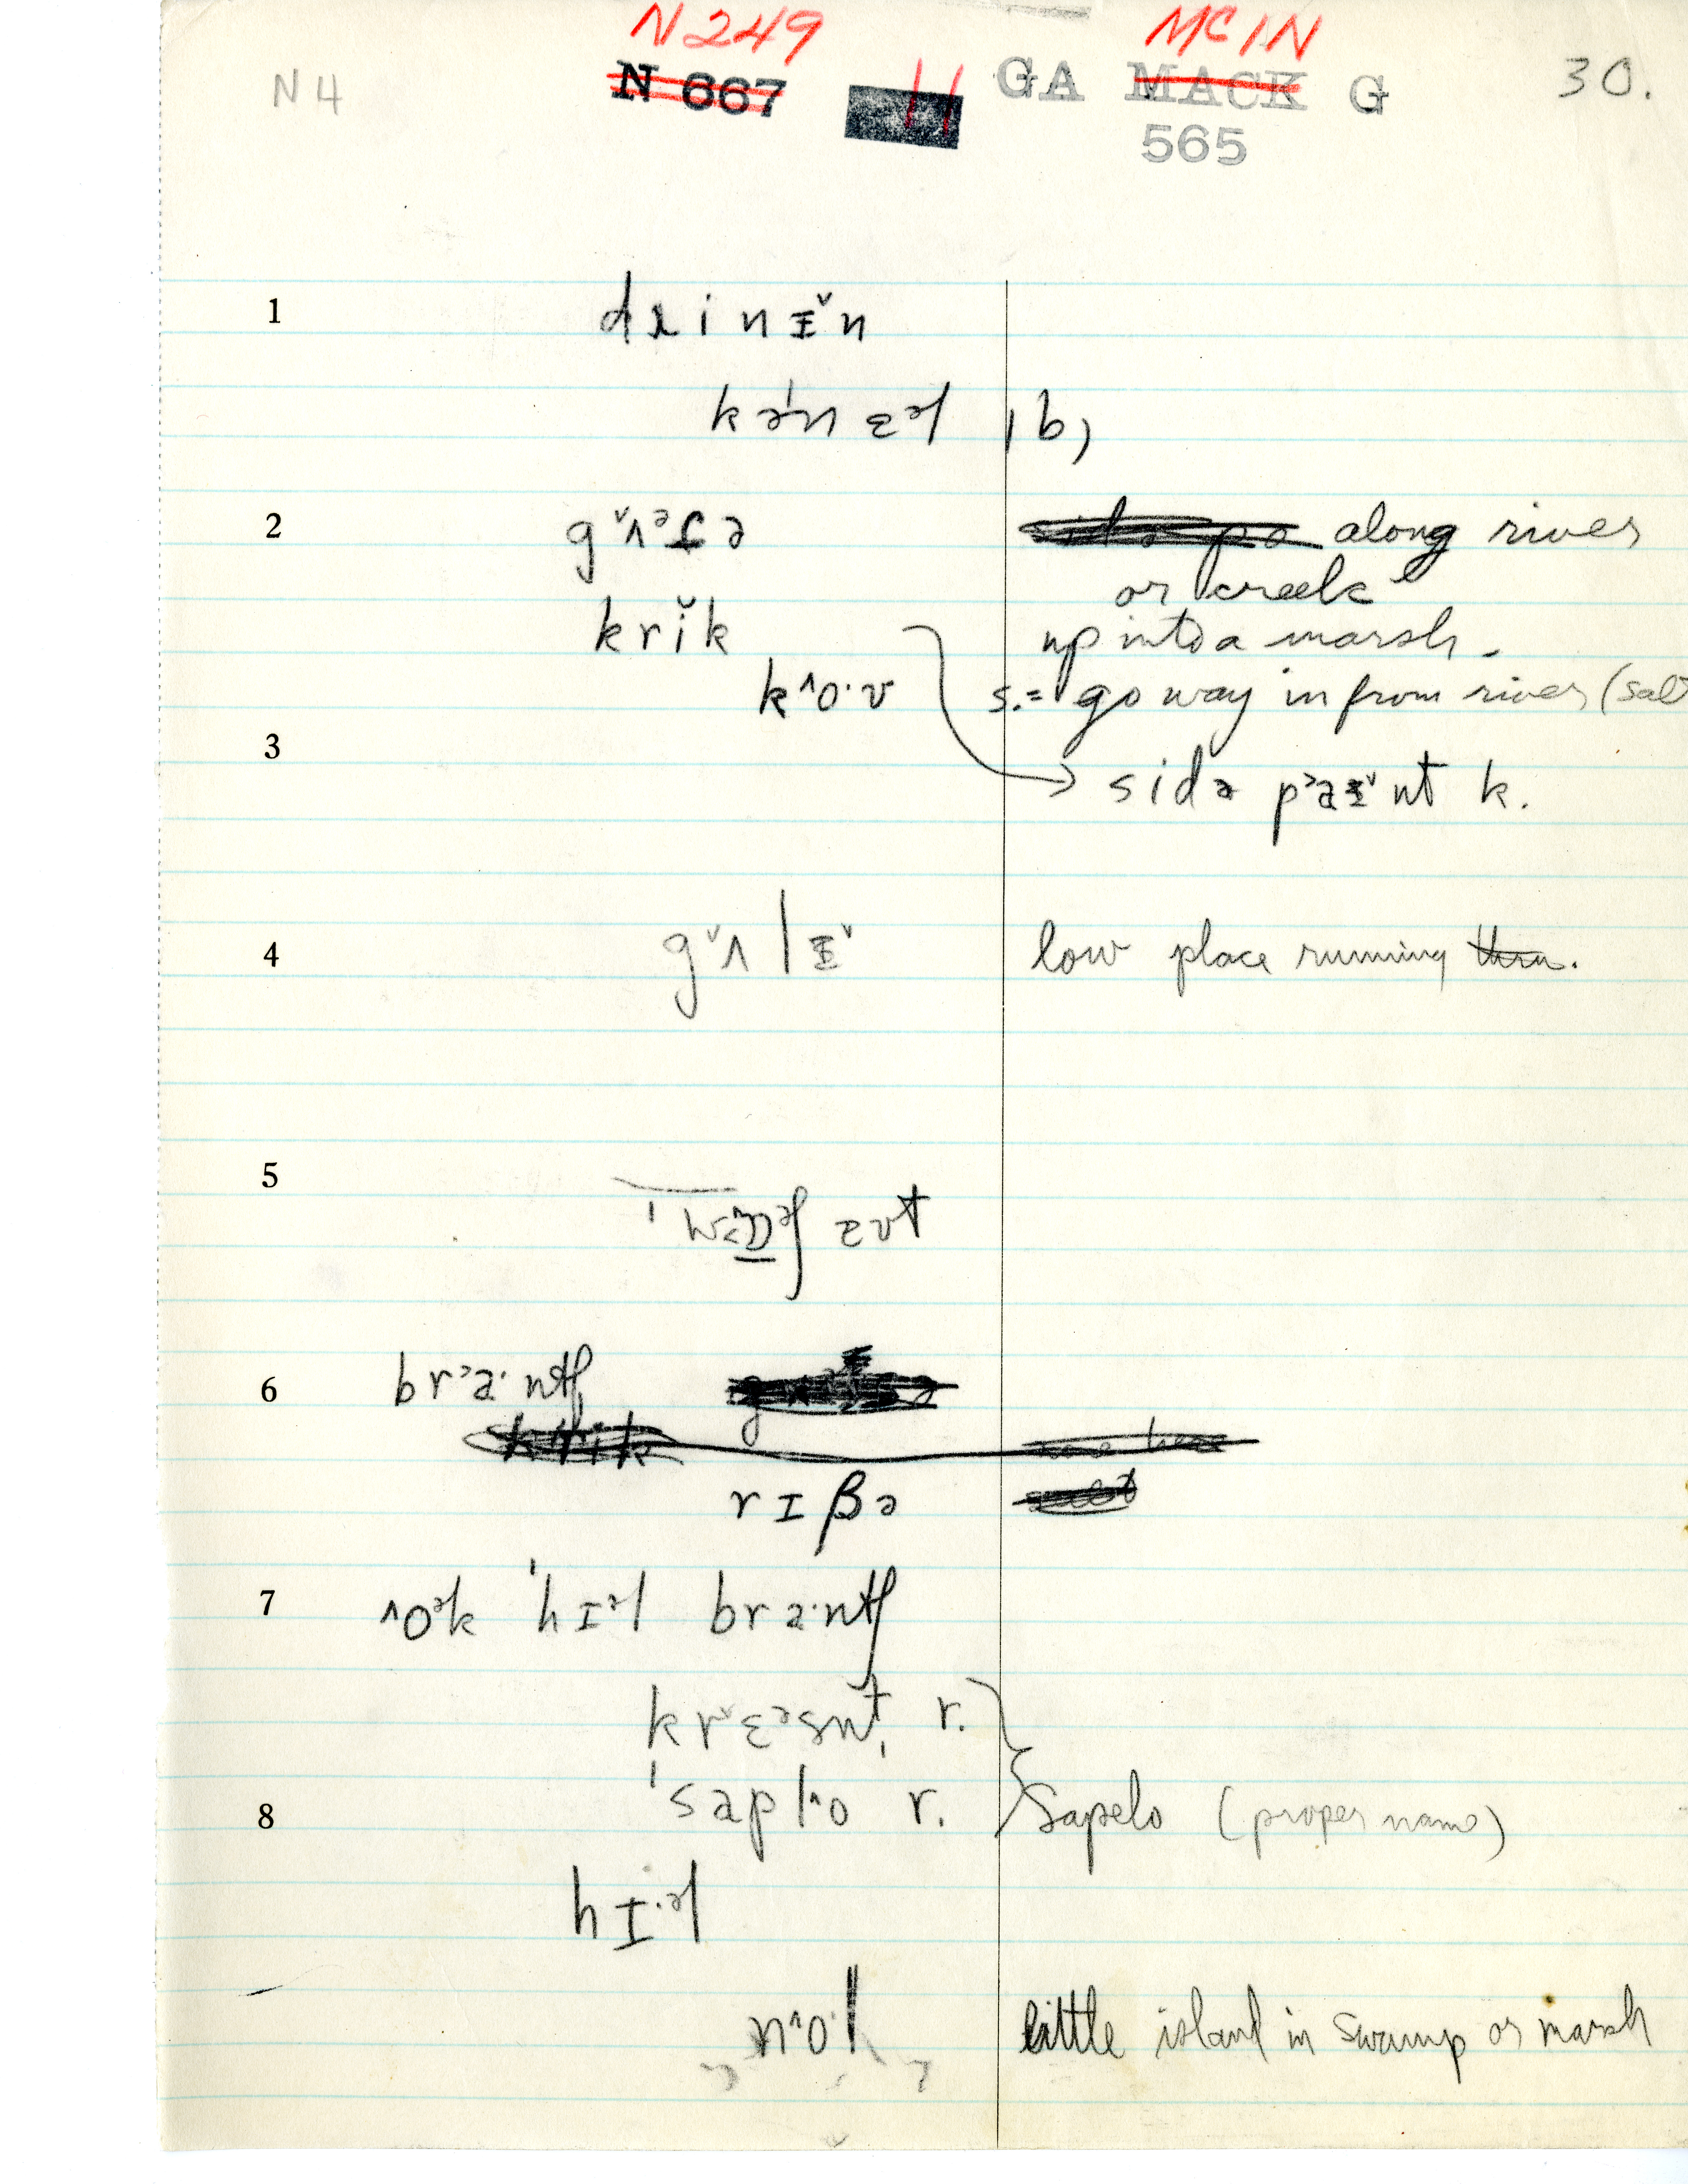 N 249 MCIN
N 4 N 667 11 GA MACK G 30.
565
1 dɹinɪ̌n
kən ɛəl |b,
2 g ʌ ə f ə along river
or creek
krǐk up into a marsh.
k^o·v s.= go way in from river (salt
3
sidə paɪnt k.
4 gˇʌlɪˇ low place running thru.
5
ɛvt
6 brᵊa·ntʃ
rɪβə
7 ^oᵊk ˈhɪᵊl bra·ntʃ
krˇɛᵊsnt, r.
8 ˈsapl^o r. Sapelo (proper name)
hɪ·ᵊl
n^ol little island in swamp or marsh